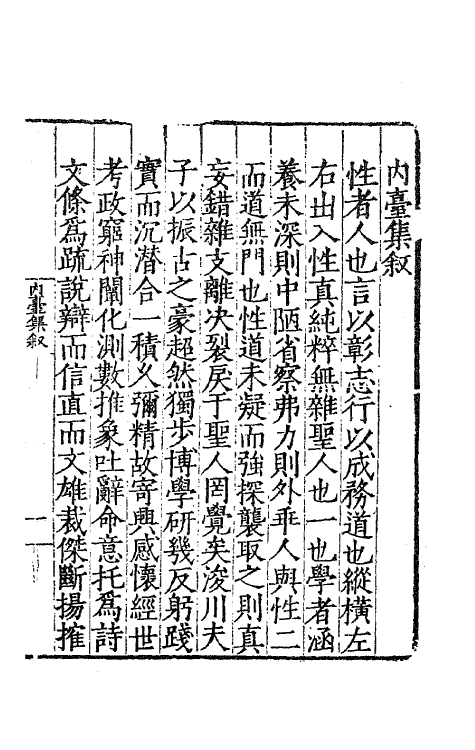 內臺集叙
性者人也言以彰志行以成務道也縱橫左
右出入性真純粹無雜聖人也一也學者涵
養未深則中陋省察弗力則外乖人與性二
而道無門也性道未凝而強探襲取之則真
妄錯雜支離决裂戾于聖人罔覺矣浚川夫
子以振古之豪超然獨步博學研幾反躬踐
實而沉潛合一積乆彌精故寄興感懷經世
考政窮神闡化測數推象吐辭命意托爲詩
文條爲疏說辯而信直而文雄裁傑斷揚搉
內臺集叙
一